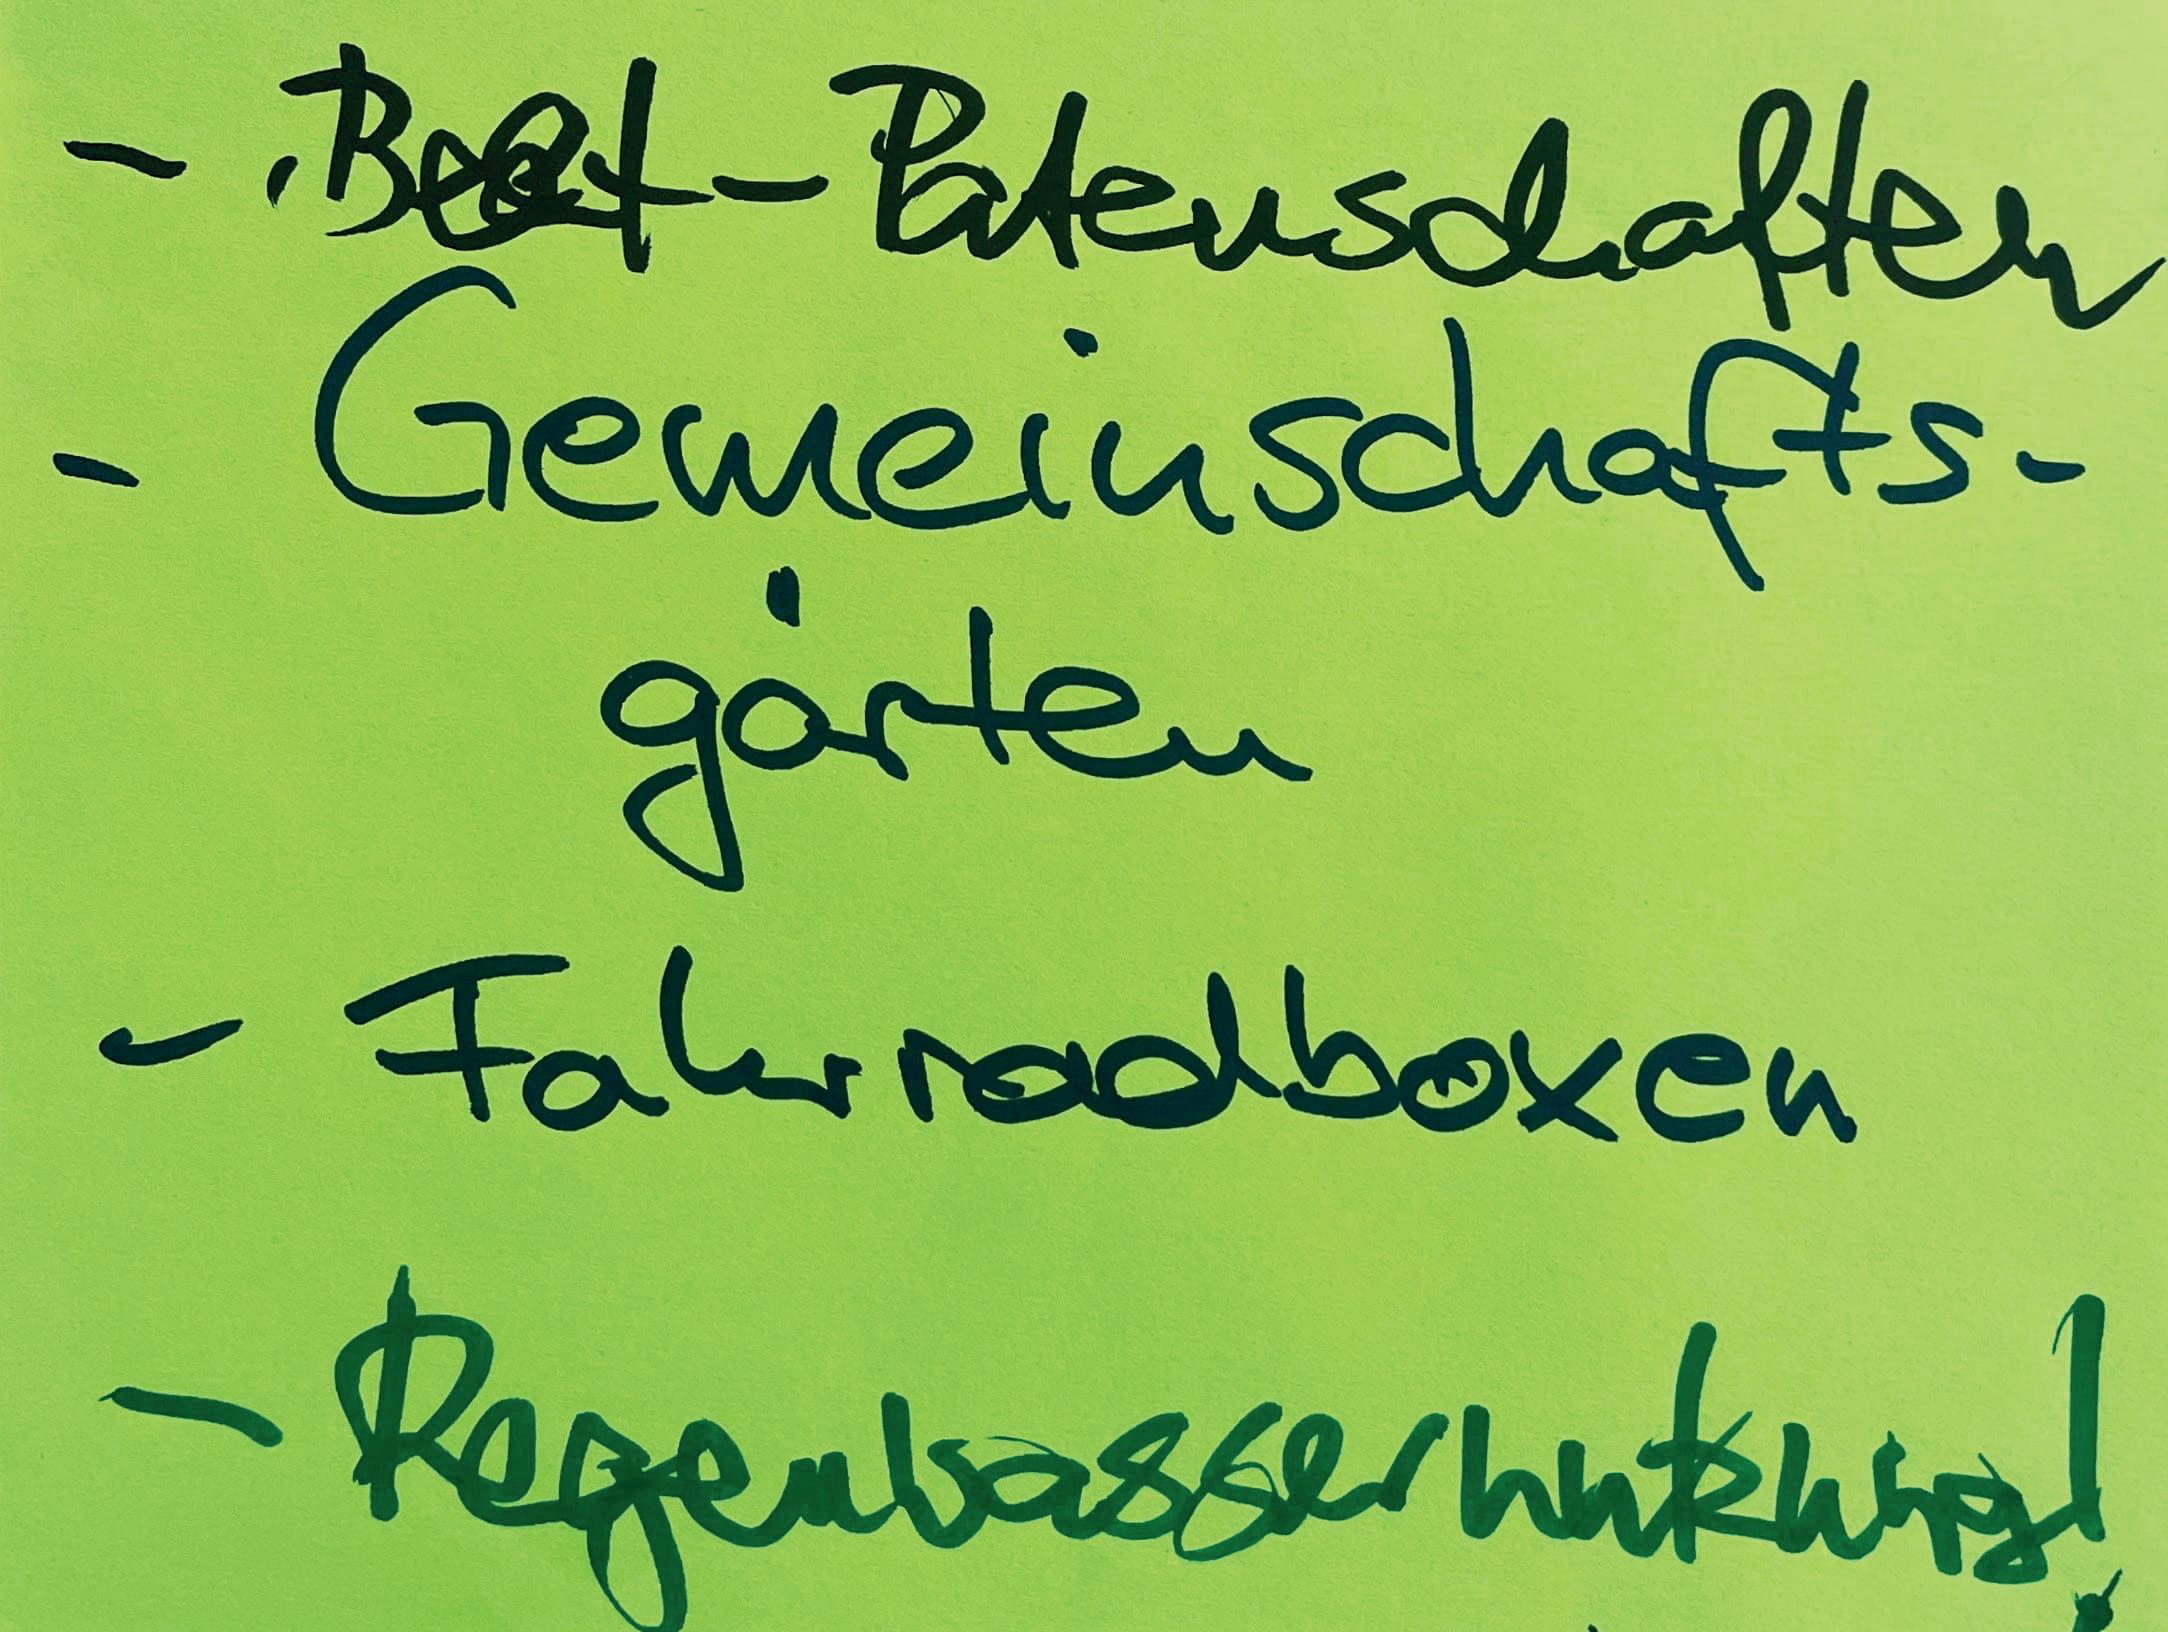 - Beet-Patenschaften
- Gemeinschafts-
gärten
- Fahrradboxen
- Regenwassernutzung!